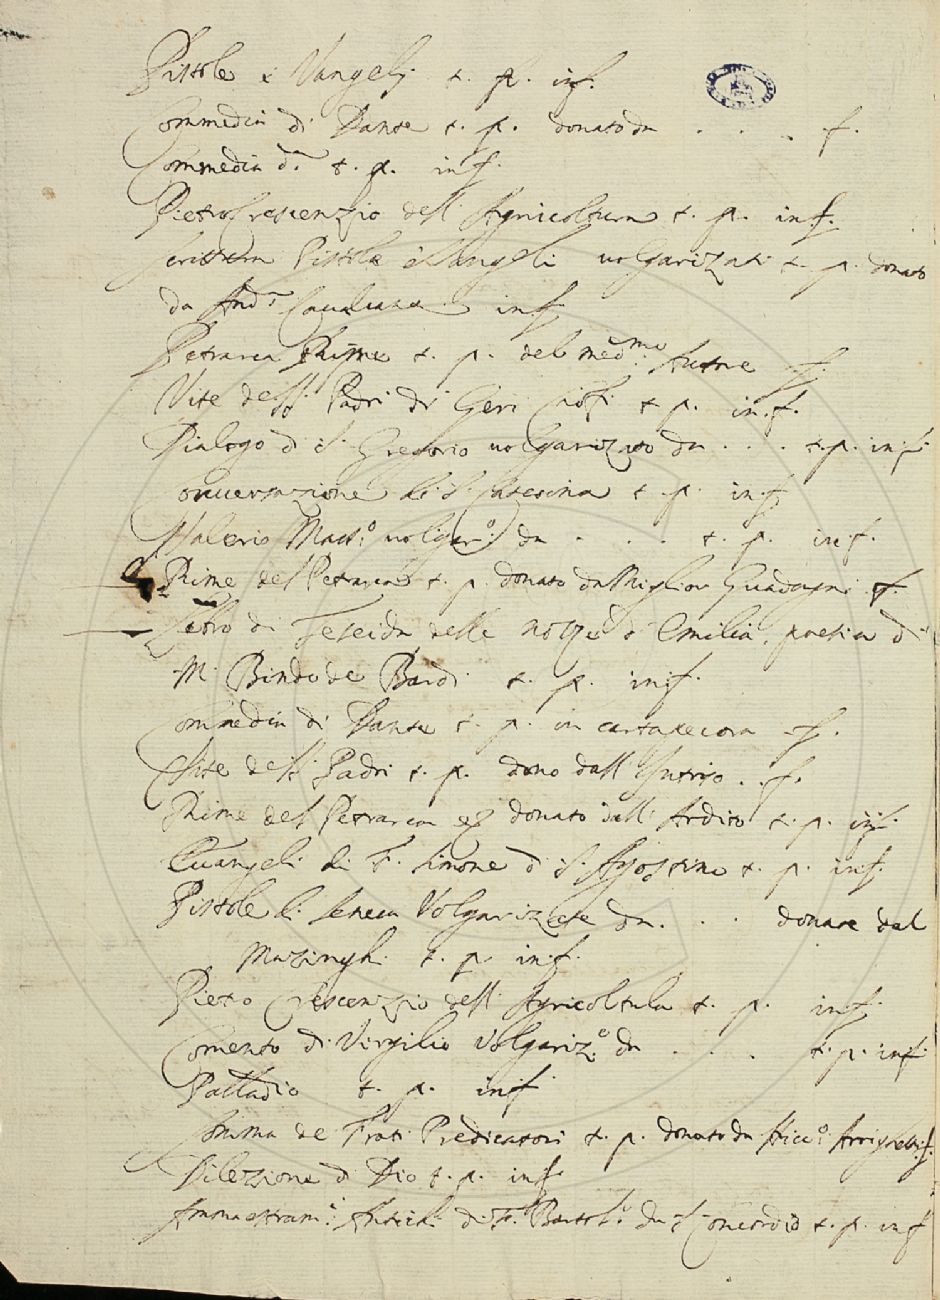 Pistole e Vangelj t. p. in f.
Commedia di Dante t. p. donato da . . . f.
Commedia d.ª t. p. in f.
Pietro Crescenzio dell' Agricoltura t. p. in f.
Scrittura Pistole e Vangeli uolgarizati t. p. donato
da And.ª Caualcanti in f.
Petrarca Rime t. p. del med.mo f.
Vite degli Padri di Geri t. p. in f.
Dialogo di S. Gregorio uolgarizato da . . . t. p. in f.
Conuersazione di S. Caterina t. p. in f.
Valerio Mass.º uolgar.º da . . . t. p. in f.
Rime del Petrarca t. p. donato da Miglior Guadagni f.
Libro di Teseida delle nozze d' Emilia, poesia di
M. Bindo de Bardi t. p. in f.
Commedia di Dante t. p. in cartapecora f.
Vite de SS. Padri t. p. dono dall' . . f.
Rime del Petrarca donato dall' Ardito t. p. in f.
Euangeli di F. Simone d. S. Agostino t. p. in f.
Pistole di Seneca Volgarizate da . . . donate dal
Mazinghi t. p. in f.
Pietro Crescenzio dell' Agricoltula t. p. in f.
Comento di Virgilio Volgariz.º da . . . t. p. in f.
Palladio t. p. in f.
Somma de Frati Predicatori t. p. donato da Nicc.º Arrighetti f.
Dilezione di Dio t. p. in f.
Ammaestram.i Antichi di F. Bartol.º da S. Concordio t. p. in f.